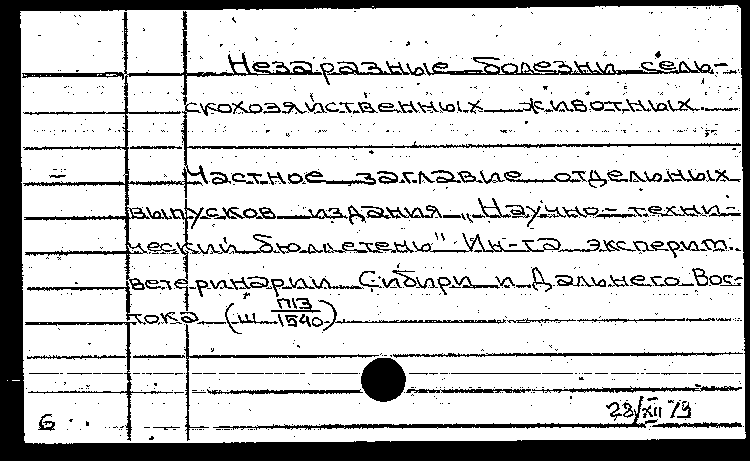 Незаразные болезни сель-
скохозяйственных животных.
Частное заглавие отдельных
выпусков издания „Научно-техни-
ческий бюллетень" Ин-та эксперим.
ветеринарии Сибири и Дальнего Вос-
тока (Ш П13/1540)
28/XII 79
6